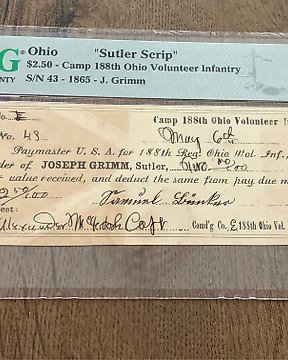 G Ohio "Sutler Scrip"
$2.50 - Camp 188th Ohio Volunteer Infantry
NTY S/N 43 - 1865 - J. Grimm
Co. E Camp 188th Ohio Volunteer
No. 43 May 6th
Paymaster U. S. A. for 188th Reg. Ohio Vol. Inf.,
der of JOSEPH GRIMM, Sutler, Two
value received, and deduct the same from pay due m
2 50/100 Samuel
Alexander Capt Comd'g Co. E, 188th Ohio Vol.